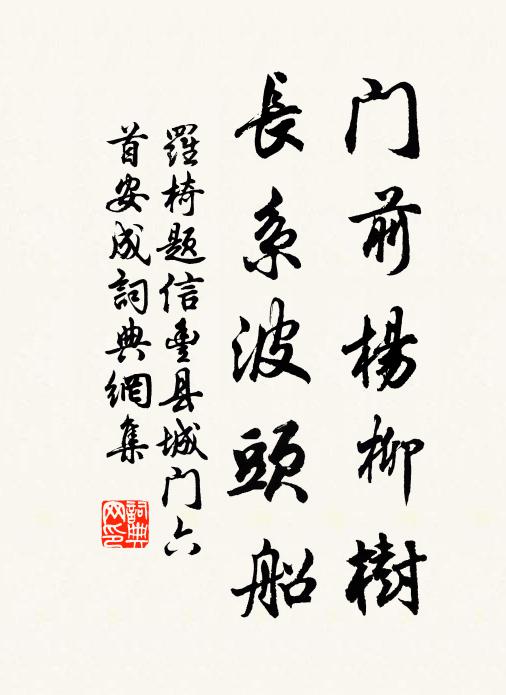 门前楊柳樹
長系波頭船
羅椅题信豊县城门六
首安成詞典網集
詞典网印